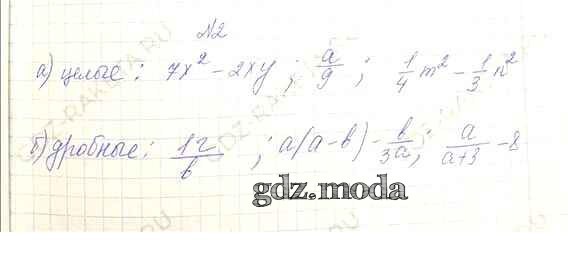 №2
а) целые: 7x² - 2xy; a/9; 1/4 m² - 1/3 n²
б) дробные: 12/b; a(a-b) - b/3a; a/a+3 - 8
gdz.moda